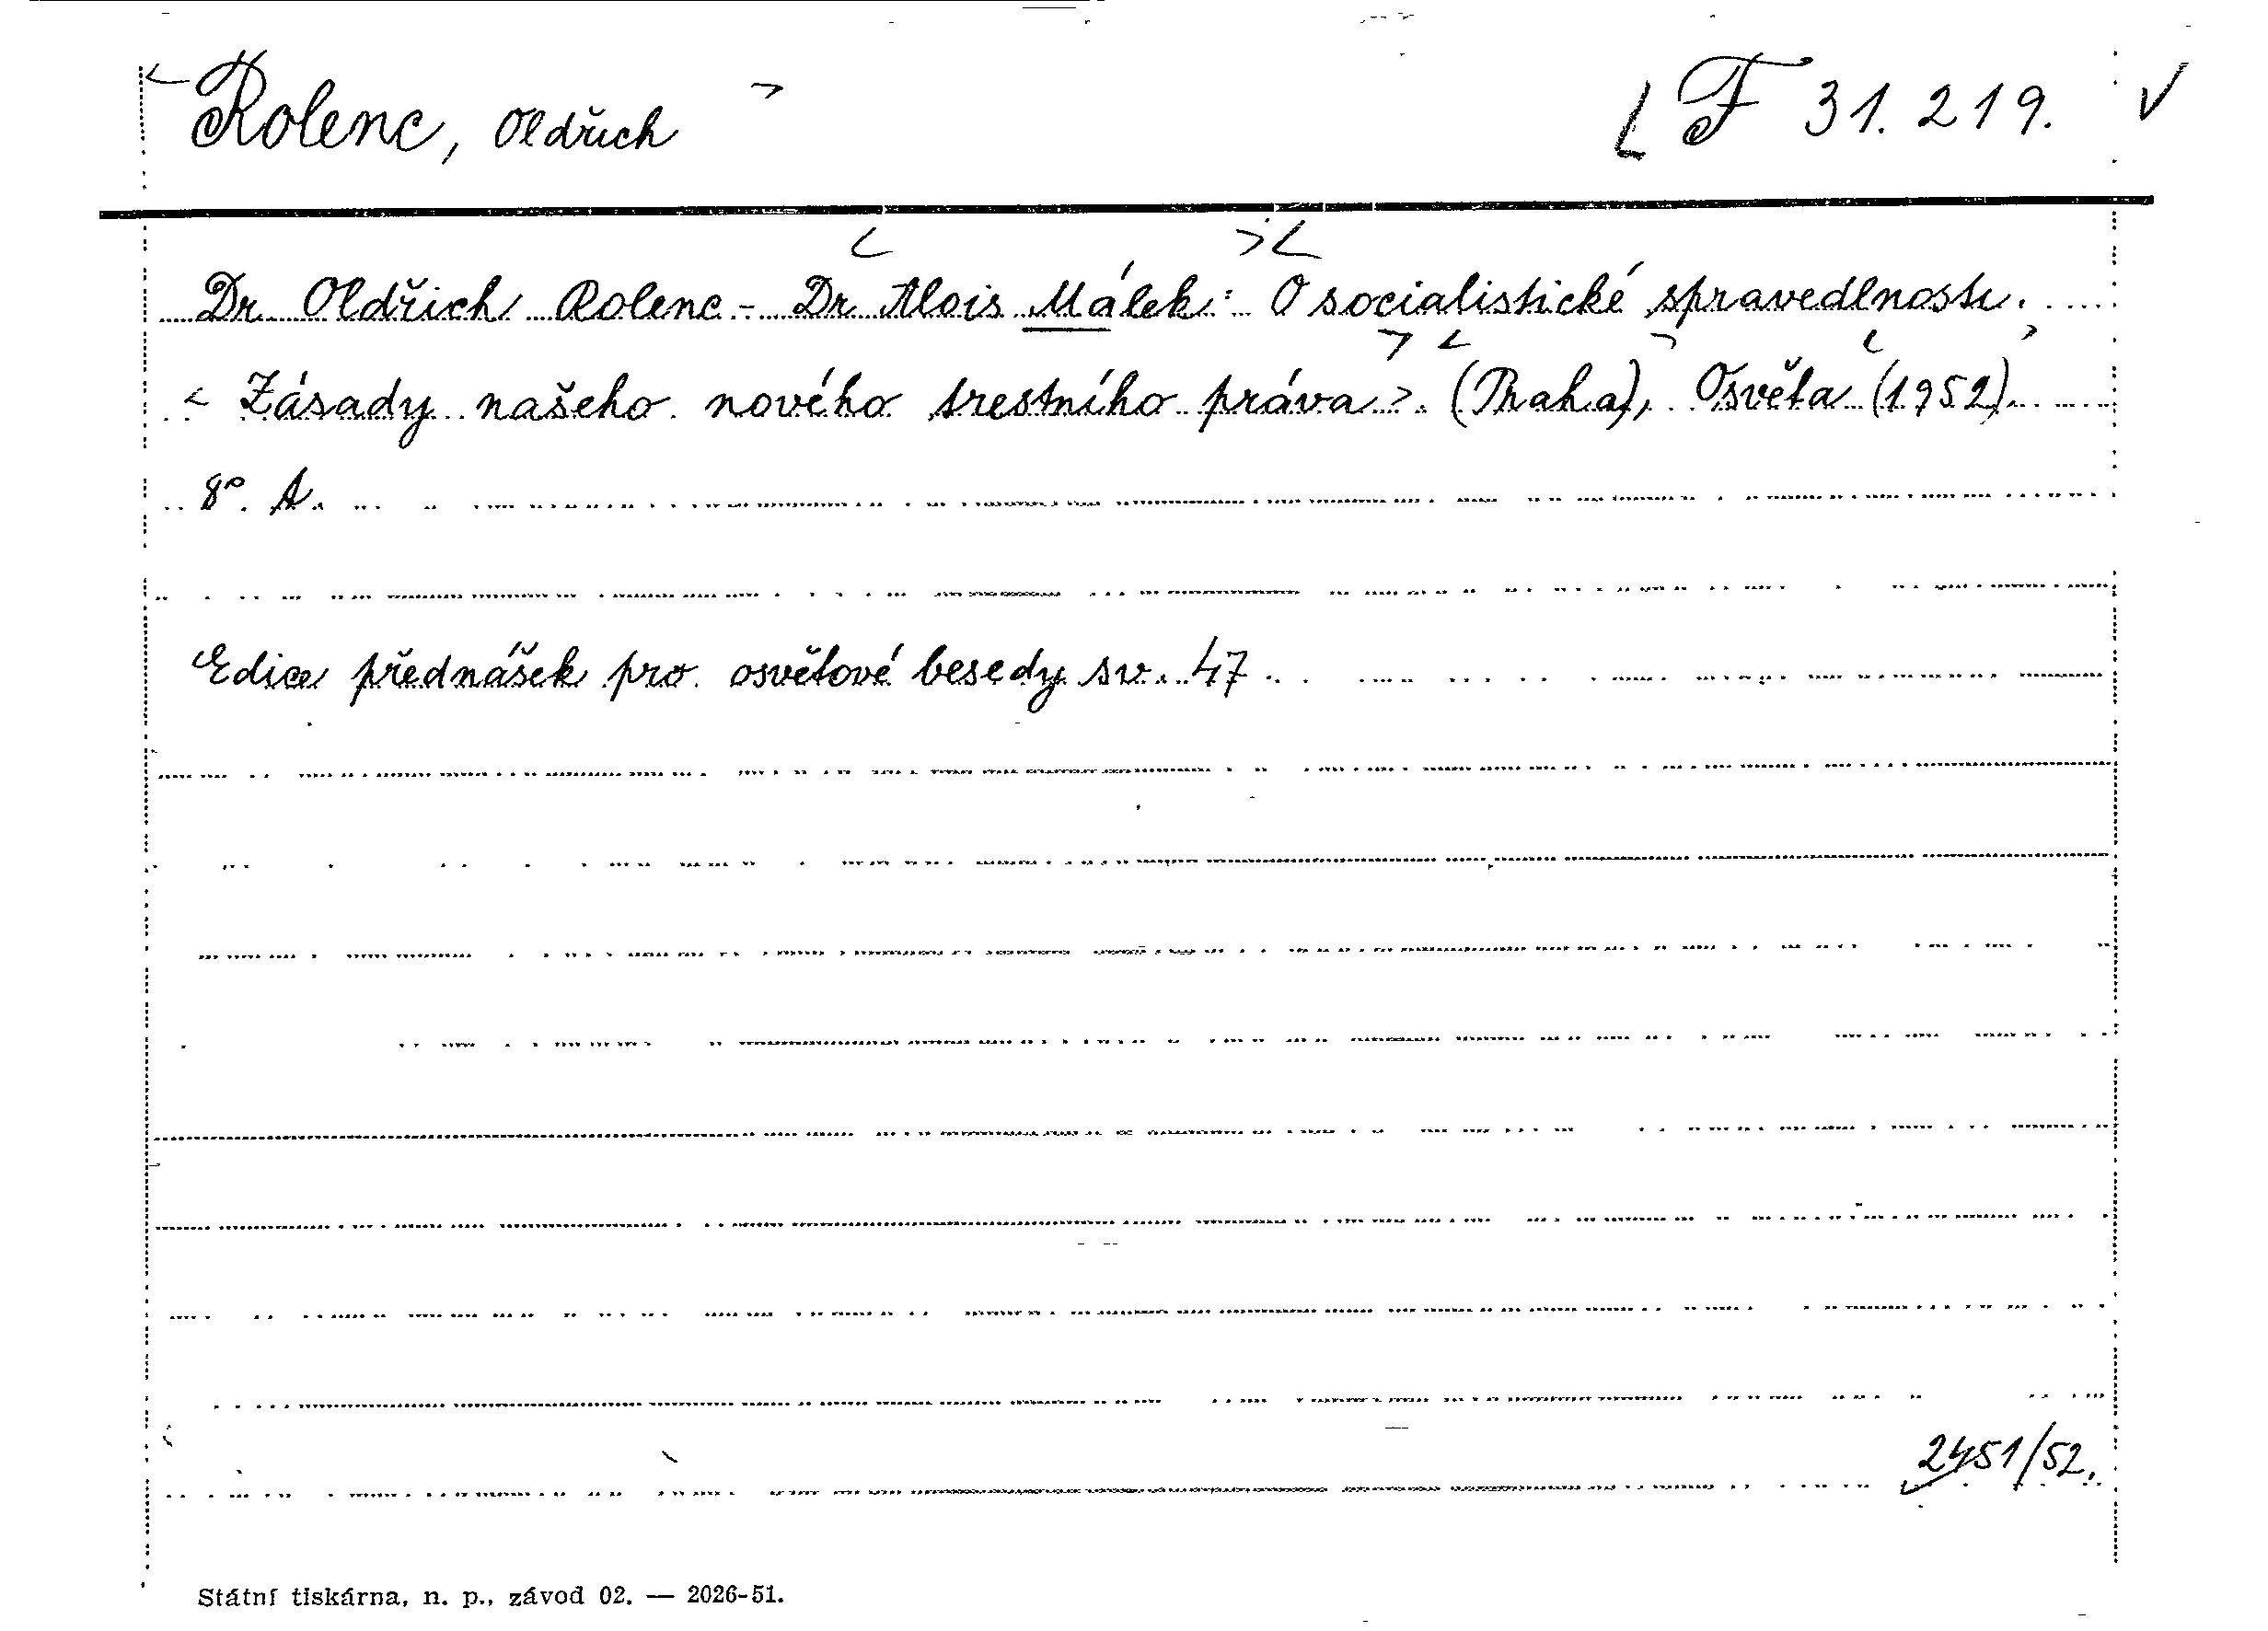 Rolenc, Oldřich
F 31.219.
Dr Oldřich Rolenc - Dr Alois Málek: O socialistické spravedlnosti.
< Zásady našeho nového trestního práva >. (Praha), Osvěta (1952).
8°. A.
Edice přednášek pro osvětové besedy sv. 47
2451/52.
Státní tiskárna, n. p., závod 02. — 2026-51.